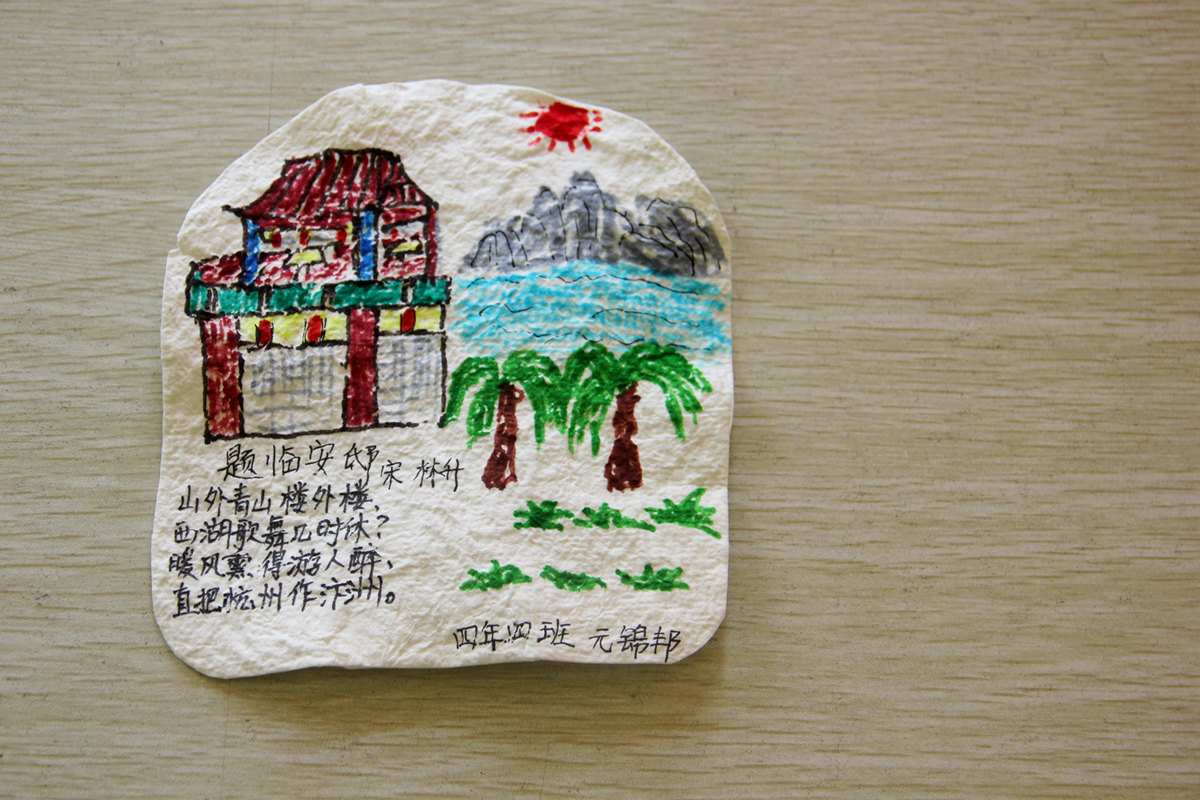 题临安邸 宋 林升
山外青山楼外楼，
西湖歌舞几时休？
暖风熏得游人醉，
直把杭州作汴洲。
四年四班 元锦邦